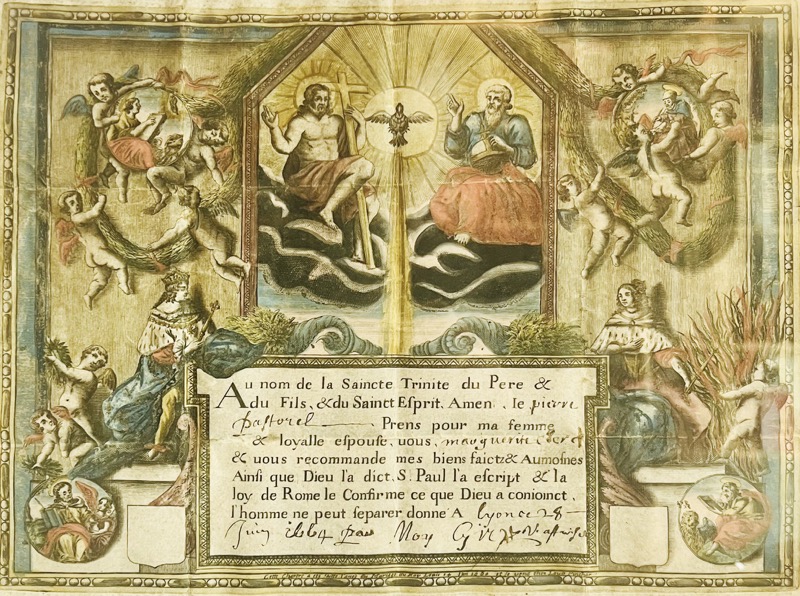 Au nom de la Saincte Trinite du Pere &
du Fils, & du Sainct Esprit. Amen. Ie pierre
pastorel Prens pour ma femme
& loyalle espouse, vous, marguerite
& vous recommande mes biens faictz & Aumosnes
Ainsi que Dieu l'a dict, S. Paul l'a escript & la
loy de Rome le Confirme ce que Dieu a conioinct,
l'homme ne peut separer donne A Lyon ce 28
Juin 1664 par Moy